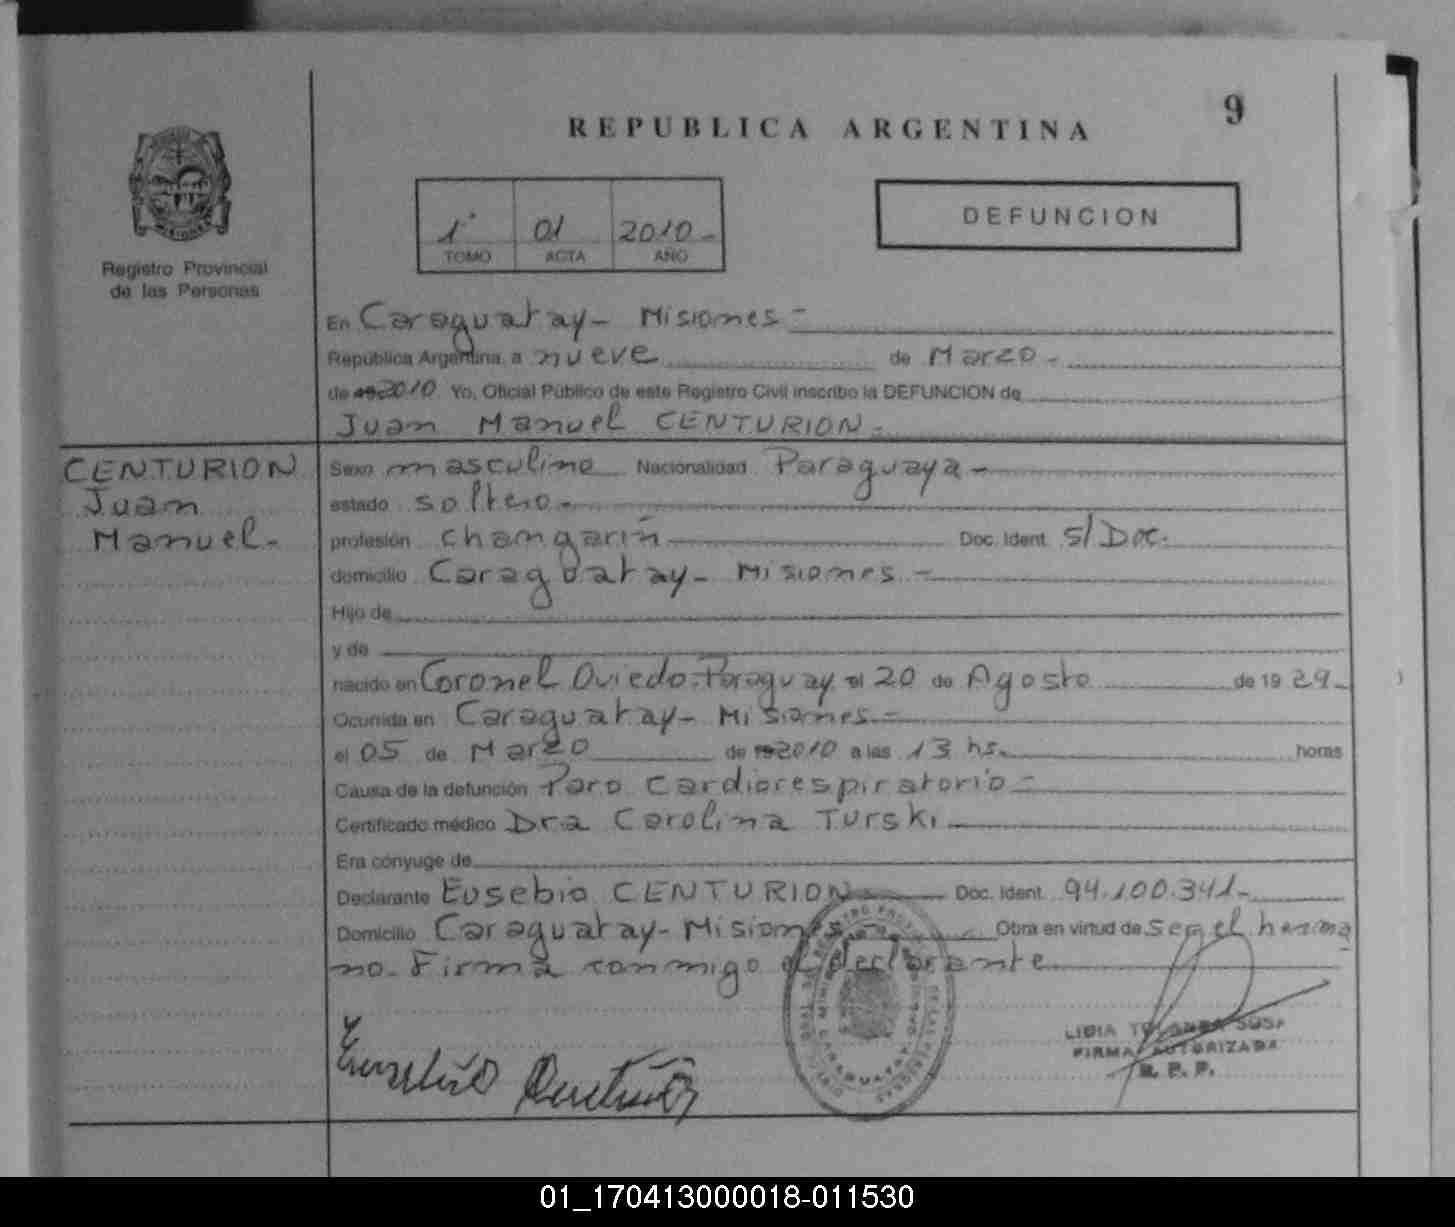 9
REPUBLICA ARGENTINA
1° 01 2010-
TOMO ACTA AÑO
DEFUNCION
MISIONES
Registro Provincial
de las Personas
En Caraguatay- Misiones-
República Argentina, a nueve de Marzo-
de 192010 Yo, Oficial Público de este Registro Civil inscribo la DEFUNCION de
Juan Manuel CENTURION-
CENTURION
Juan
Manuel-
Sexo masculino Nacionalidad Paraguaya-
estado soltero-
profesión changarin Doc. Ident. S/Doc.
domicilio Caraguatay- Misiones-
Hijo de
y de
nacido en Coronel Oviedo-Paraguay el 20 de Agosto de 1929-
Ocurrida en Caraguatay- Misiones-
el 05 de Marzo de 192010 a las 13 hs. horas
Causa de la defunción Paro Cardiorespiratorio-
Certificado médico Dra Carolina Turski
Era cónyuge de
Declarante Eusebio CENTURION Doc. Ident. 94.100.341-
Domicilio Caraguatay- Misiones- Obra en virtud de Ser el herma
no- Firma conmigo el declarante
Eusebio Centurion
LIDIA YOLANDA SOSA
FIRMA AUTORIZADA
R. P. P.
01_170413000018-011530